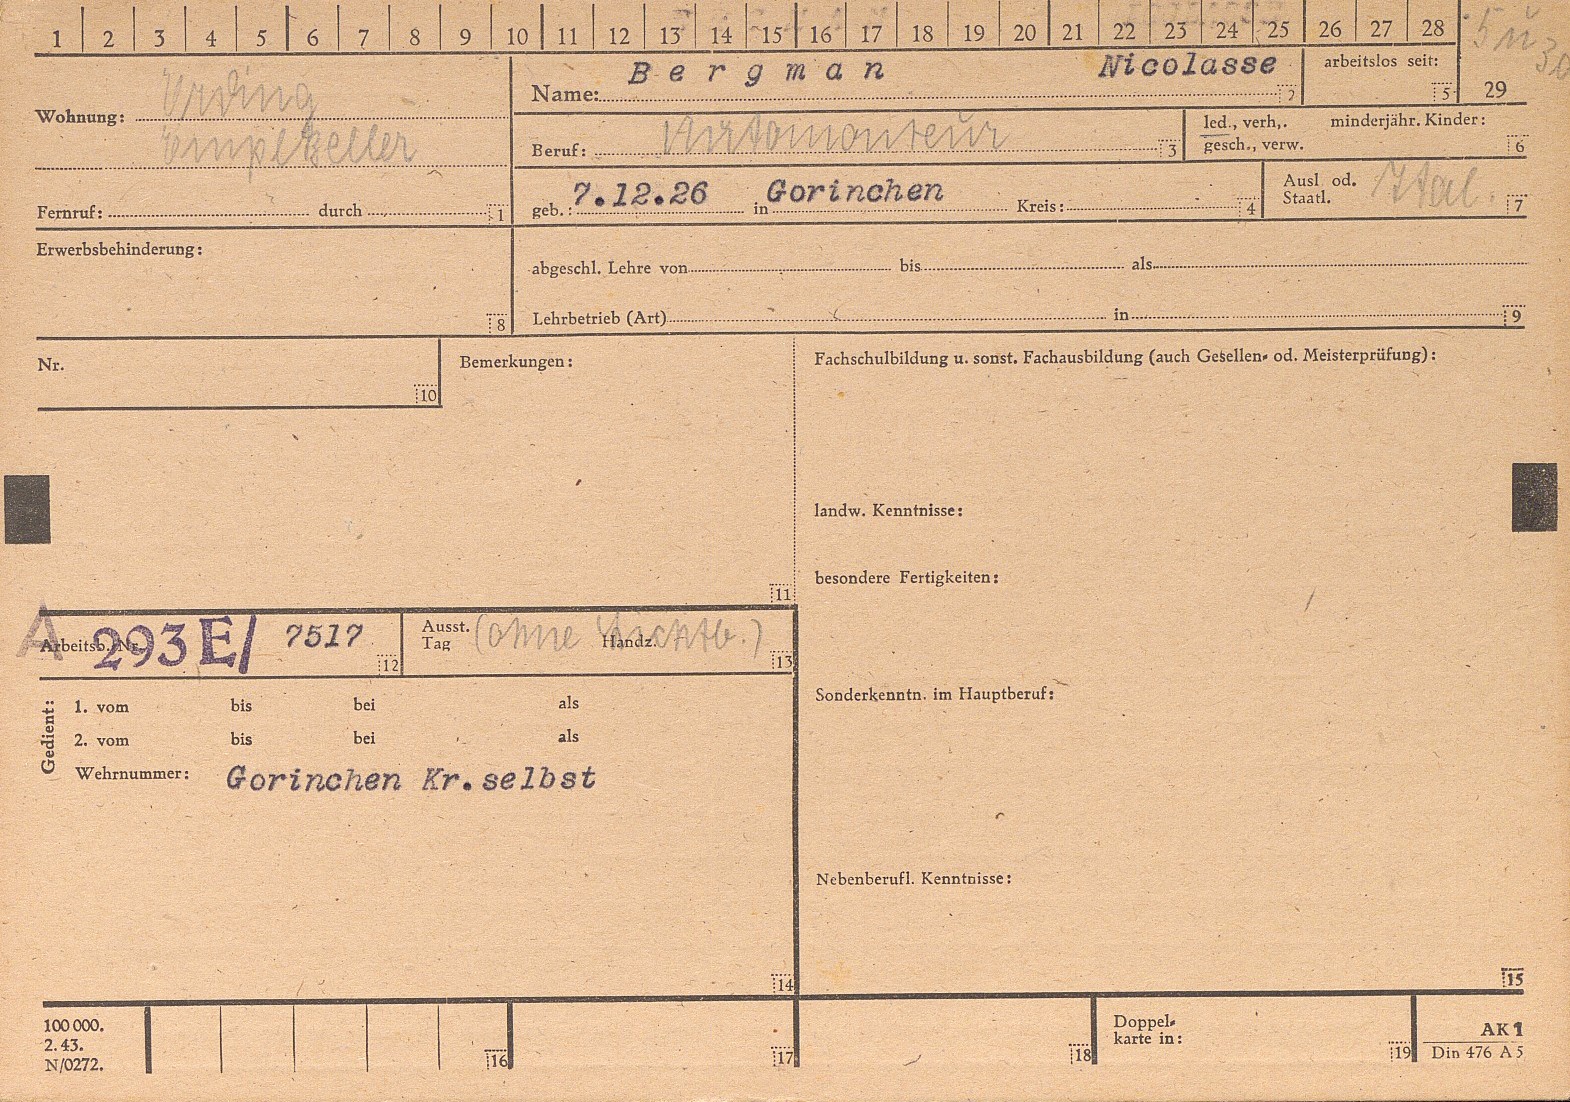 1 2 3 4 5 6 7 8 9 10 11 12 13 14 15 16 17 18 19 20 21 22 23 24 25 26 27 28
29
Wohnung: Erding
Empl Keller
Fernruf: durch 1
Name: Bergman Nicolasse 2
arbeitslos seit: 5
Beruf: 3
led., verh,. minderjähr. Kinder:
gesch., verw. 6
geb.: 7.12.26 in Gorinchen Kreis: 4
Ausl od.
Staatl. Ital. 7
Erwerbsbehinderung:
8
abgeschl. Lehre von bis als
Lehrbetrieb (Art) in 9
Nr.
10
Bemerkungen:
11
Fachschulbildung u. sonst. Fachausbildung (auch Gesellen- od. Meisterprüfung):
landw. Kenntnisse:
besondere Fertigkeiten:
Sonderkenntn. im Hauptberuf:
Nebenberufl. Kenntnisse:
15
A
Arbeitsb. Nr. 293 E/ 7517 12
Ausst.
Tag (ohne Handz. 13
Gedient:
1. vom bis bei als
2. vom bis bei als
Wehrnummer: Gorinchen Kr.selbst
14
100 000.
2. 43.
N/0272.
16
17
18
Doppel-
karte in:
19
AK 1
Din 476 A 5